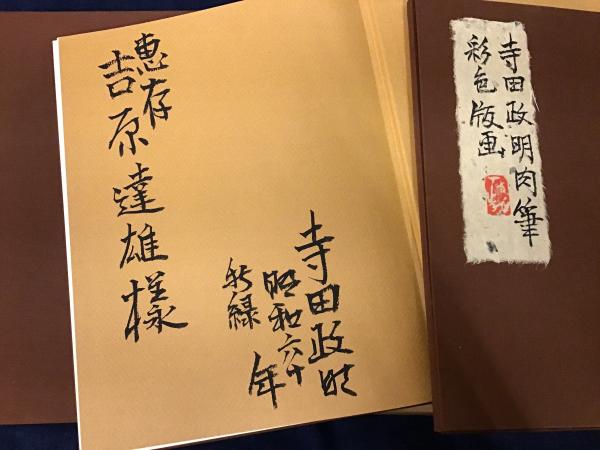 惠存
吉原達雄様
寺田政明
昭和六十年
新緑
寺田政明肉筆
彩色版画